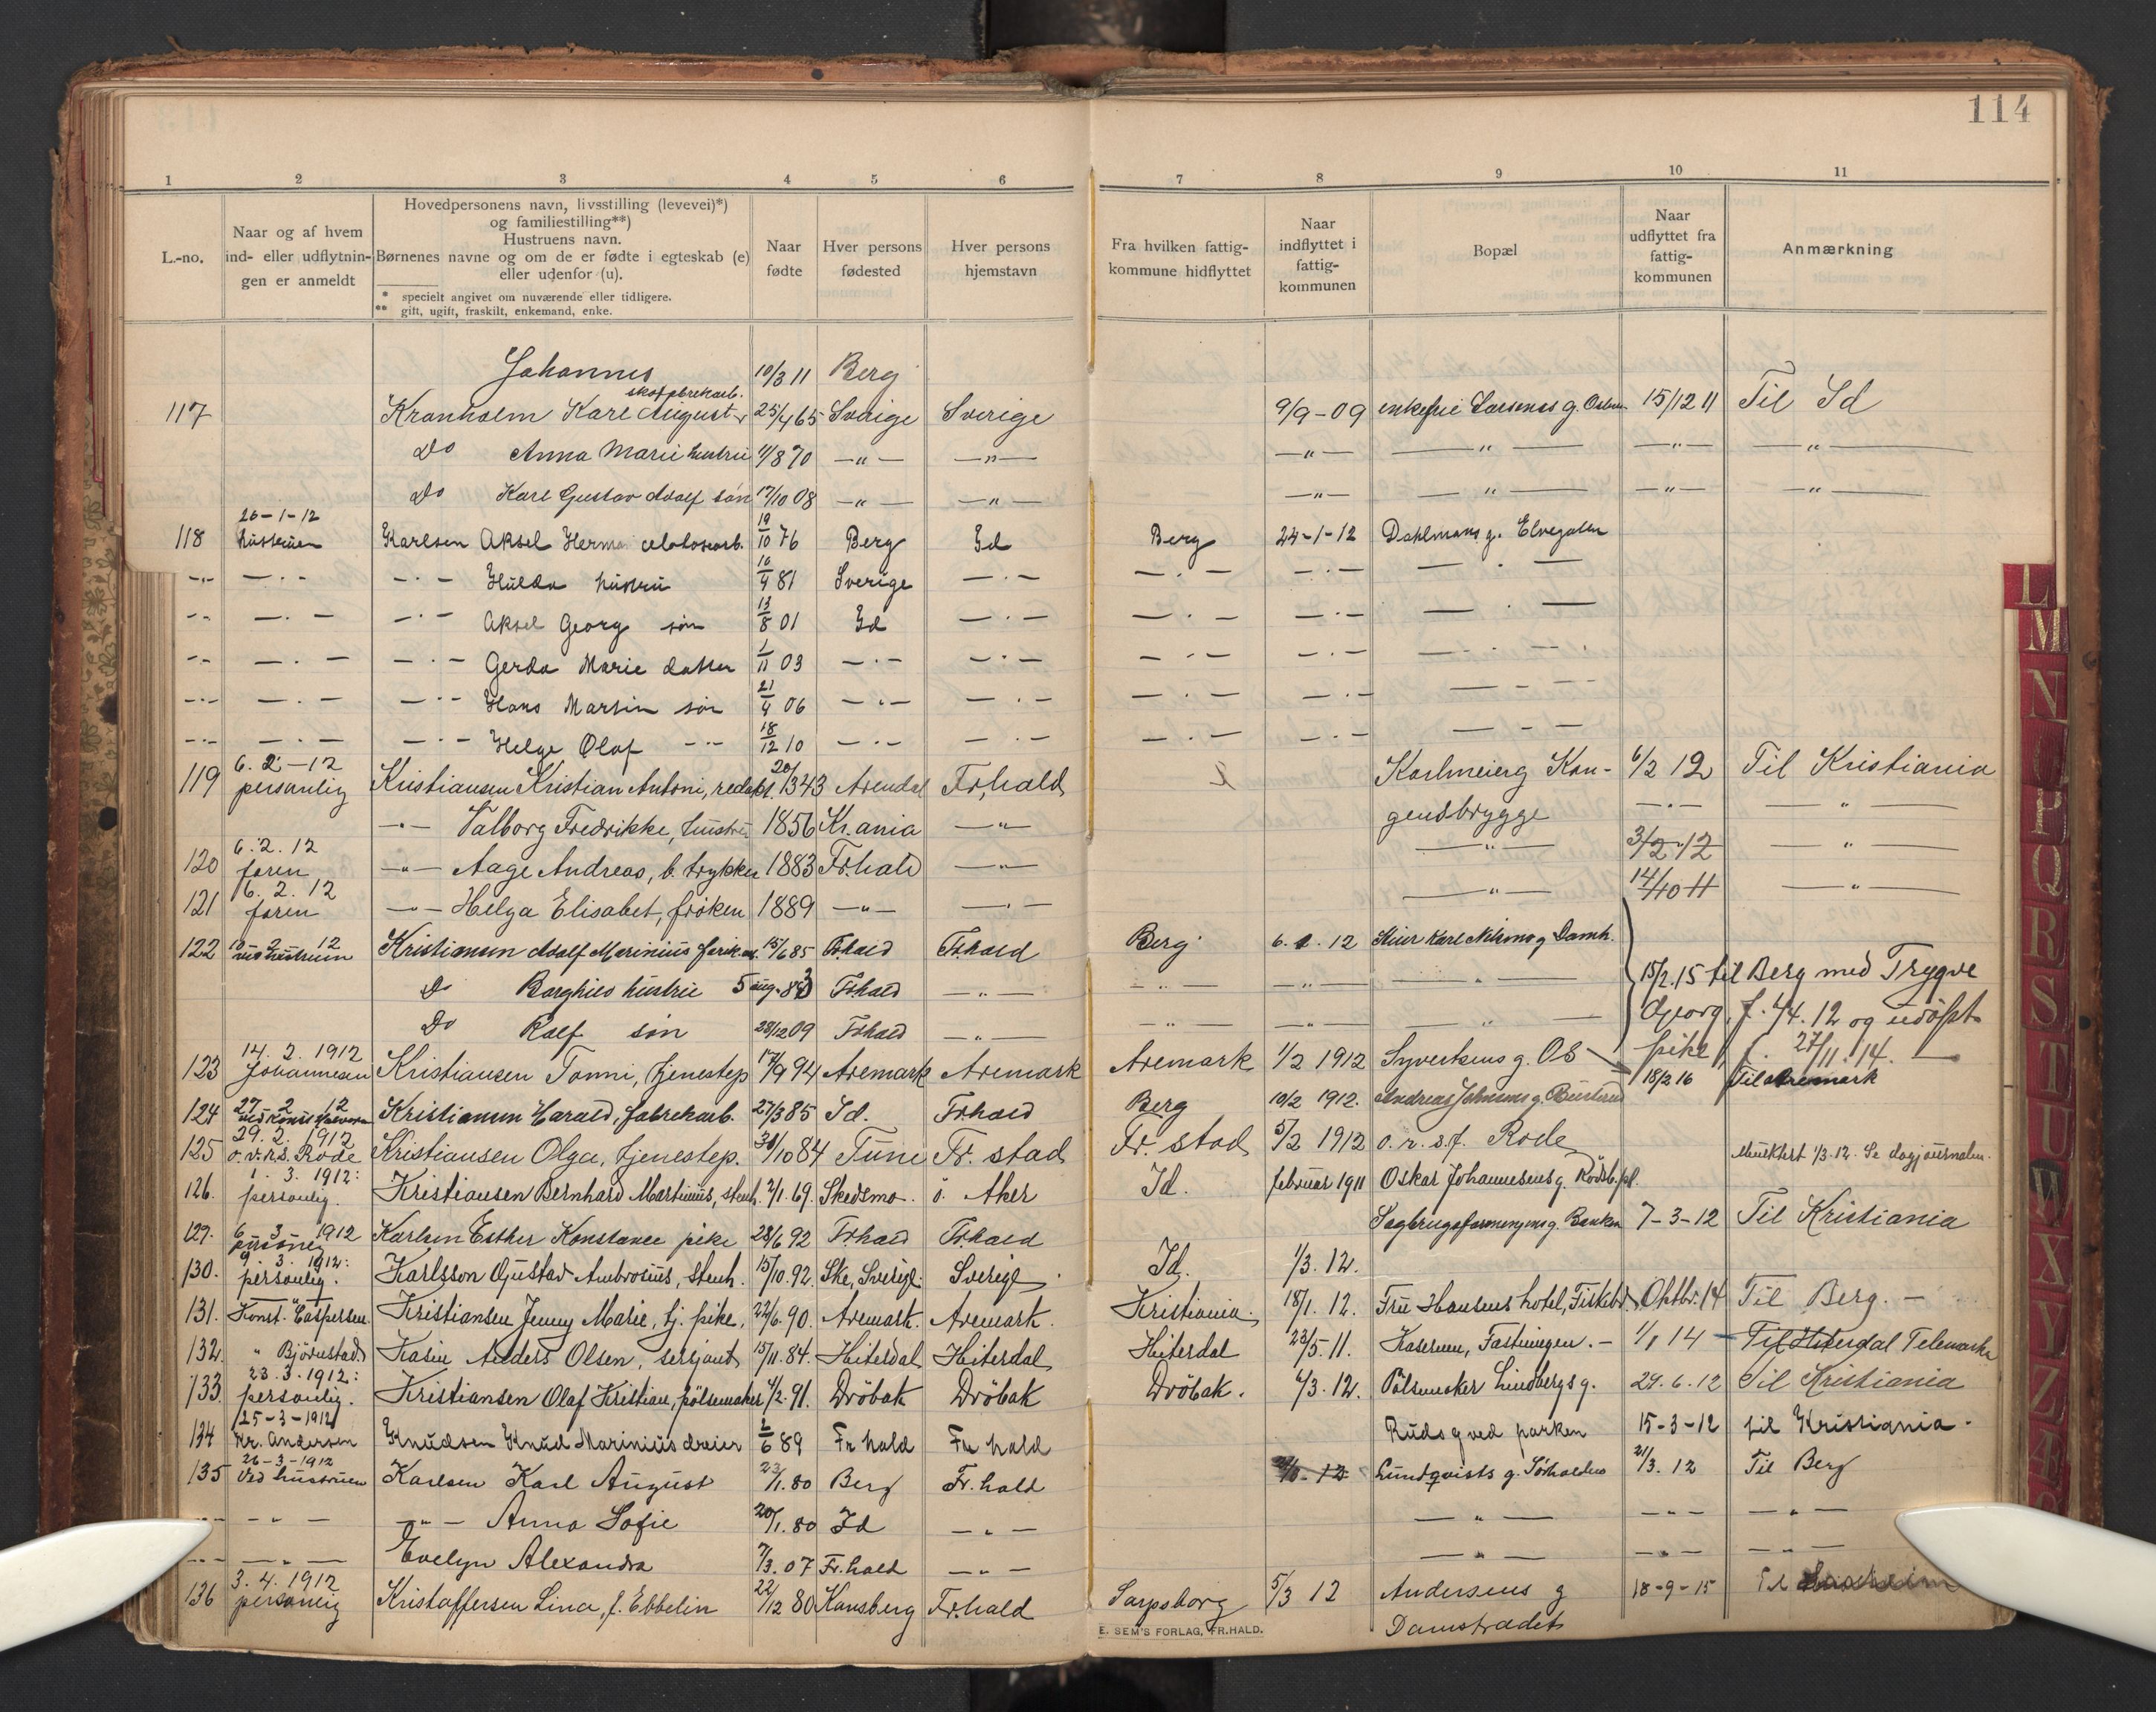 114
1 2 3 4 5 6 7 8 9 10 11
L.-no.
Naar og af hvem ind- eller udflytningen er anmeldt
Hovedpersonens navn, livsstilling (levevei)*)
og familiestilling**)
Hustruens navn.
Børnenes navne og om de er fødte i egteskab (e)
eller udenfor (u).
* specielt angivet om nuværende eller tidligere.
** gift, ugift, fraskilt, enkemand, enke.
Naar fødte
Hver persons fødested
Hver persons hjemstavn
Fra hvilken fattigkommune hidflyttet
Naar indflyttet i fattigkommunen
Bopæl
Naar udflyttet fra fattigkommunen
Anmærkning
Johannes 10/3 11 Berg
117 Kranholm Karl August 25/4 65 Sverige Sverige 9/9-09 enkefrue Larsens g. 15/12 11 Til Id
Do Anna Marie hustru 11/8 70 —"— —"— —"— —"— —"— —"—
Do Karl Gustav Adolf søn 17/10 08 —"— —"— —"— —"— —"— —"—
26-1-12
118 hustruen Karlsen Aksel Herman 19/10 76 Berg Id Berg 24-1-12 Dahlmans g. Elvegaten
-"- —"— —"— Hulda hustru 10/4 81 Sverige —"— —"— —"— —"—
-"- —"— —"— Aksel Georg søn 13/8 01 Id —"— —"— —"— —"—
-"- —"— —"— Gerda Marie datter 1/11 03 —"— —"— —"— —"—
-"- —"— —"— Hans Martin søn 21/4 06 —"— —"— —"— —"— —"—
-"- —"— —"— Helge Olaf —"— 18/12 10 —"— —"— —"— —"— —"—
6. 2-12
119 personlig Kristiansen Kristian Antoni, redakt. 20/1 343 Arendal Fr,hald Karlmeierg Kon- 6/2 12 Til Kristiania
—"— Valborg Fredrikke, hustru 1856 Kr.ania —"— gensbrygge —"— —"—
6.2.12
120 faren —"— Aage Andreas, b. trykker 1883 Fr.hald —"— —"— 3/2-12 —"—
6. 2. 12
121 faren —"— Helga Elisabet, frøken 1889 —"— —"— —"— 14/10 11 —"—
122 ved hustruen Kristiansen Adolf Marinius 15/6 85 Frhald Frhald Berg 6. 2. 12 Karl Nilsens g Damh.
Do Borghild hustru 5 aug. 83 Frhald —"— —"— —"— —"— 15/2.15 til Berg med Trygve
Do Ralf søn 28/12 09 Frhald —"— —"— —"— —"— Georg, f. 4/4. 12 og udöpt
14. 2. 1912
123 Johannesen Kristiansen Tonni, tjenestep 17/9 94 Aremark Aremark Aremark 1/2 1912 Syvertsens g. Os pike f. 27/11. 14.
18/2 16 Til Aremark
27 2 12
124 Kristiansen Harald, fabrekarb. 27/3 85 Id. Frhald Berg 10/2 1912. Andreas Johnsens g.
29. 2. 1912
125 o.v.r.s. Rode Kristiansen Olga, tjenestep. 30/10 84 Tune Fr. stad Fr. stad 5/2 1912 o. r. s. f. Rode
1. 3. 1912:
126. personlig. Kristiansen Bernhard Martinius, stenh. 2/1. 69. Skedsmo. ö. Aker Id. februar 1911 Oskar Johannesens g. Rödsb. pl. 1/3.12. Se dagjournalen.
6 3 1912
129. personlig Karlsen Esther Konstance pike 28/6 92 Frhald Frhald Sagbrugsforeningens g. Banken 7-3-12 Til Kristiania
9. 3. 1912:
130. personlig. Karlsson Gustav Ambrosius, stenh. 15/10. 92. Ske, Sverige. Sverige. Id. 1/3. 12.
131. Konst. Caspersen. Kristiansen Jenny Marie, tj. pike, 22/6. 90. Aremark. Aremark. Kristiania. 18/1. 12. Fru Hansens hotel, Fiskebr. Oktbr. 14 Til Berg. —
132. " Björnstad. Kasin Anders Olsen, sersjant 15/11. 84. Hiterdal Hiterdal Hiterdal 23/5. 11. Kasernen, Fæstningen. — 1/1 14 Til Hiterdal Telemarken
23. 3. 1912:
133. personlig. Kristiansen Olaf Kristian, pölsemaker 4/2. 91. Dröbak Dröbak Dröbak. 4/3. 12. Pölsemaker Lindbergs g. 29. 6. 12 Til Kristiania
25-3-1912
134 Kr. Andersen Knudsen Knud Marinius dreier 2/6 89 Fr hald Fr hald Ruds g ved parken 15-3-12 til Kristiania.
26-3-1912
135 Ved hustruen Karlsen Karl August 23/1. 80 Berg Fr. hald Lundqvists g. Sørhalden 21/3. 12 Til Berg
—"— —"— —"— Anna Sofie 20/1. 80 Id —"— —"— —"— —"—
—"— —"— Evelyn Alexandra 7/3. 07 Fr. hald —"— —"— —"— —"—
3. 4. 1912
136 personlig Kristoffersen Lina, f. Ebbelin 22/12 80 Konsberg Fr.hald Sarpsborg 5/3 12 Andersens g 18-9-15 Til
Damstrædet
E. SEM'S FORLAG, FR.HALD.
L
M
N
P
Q
R
S
T
U
W
X
Y
Z